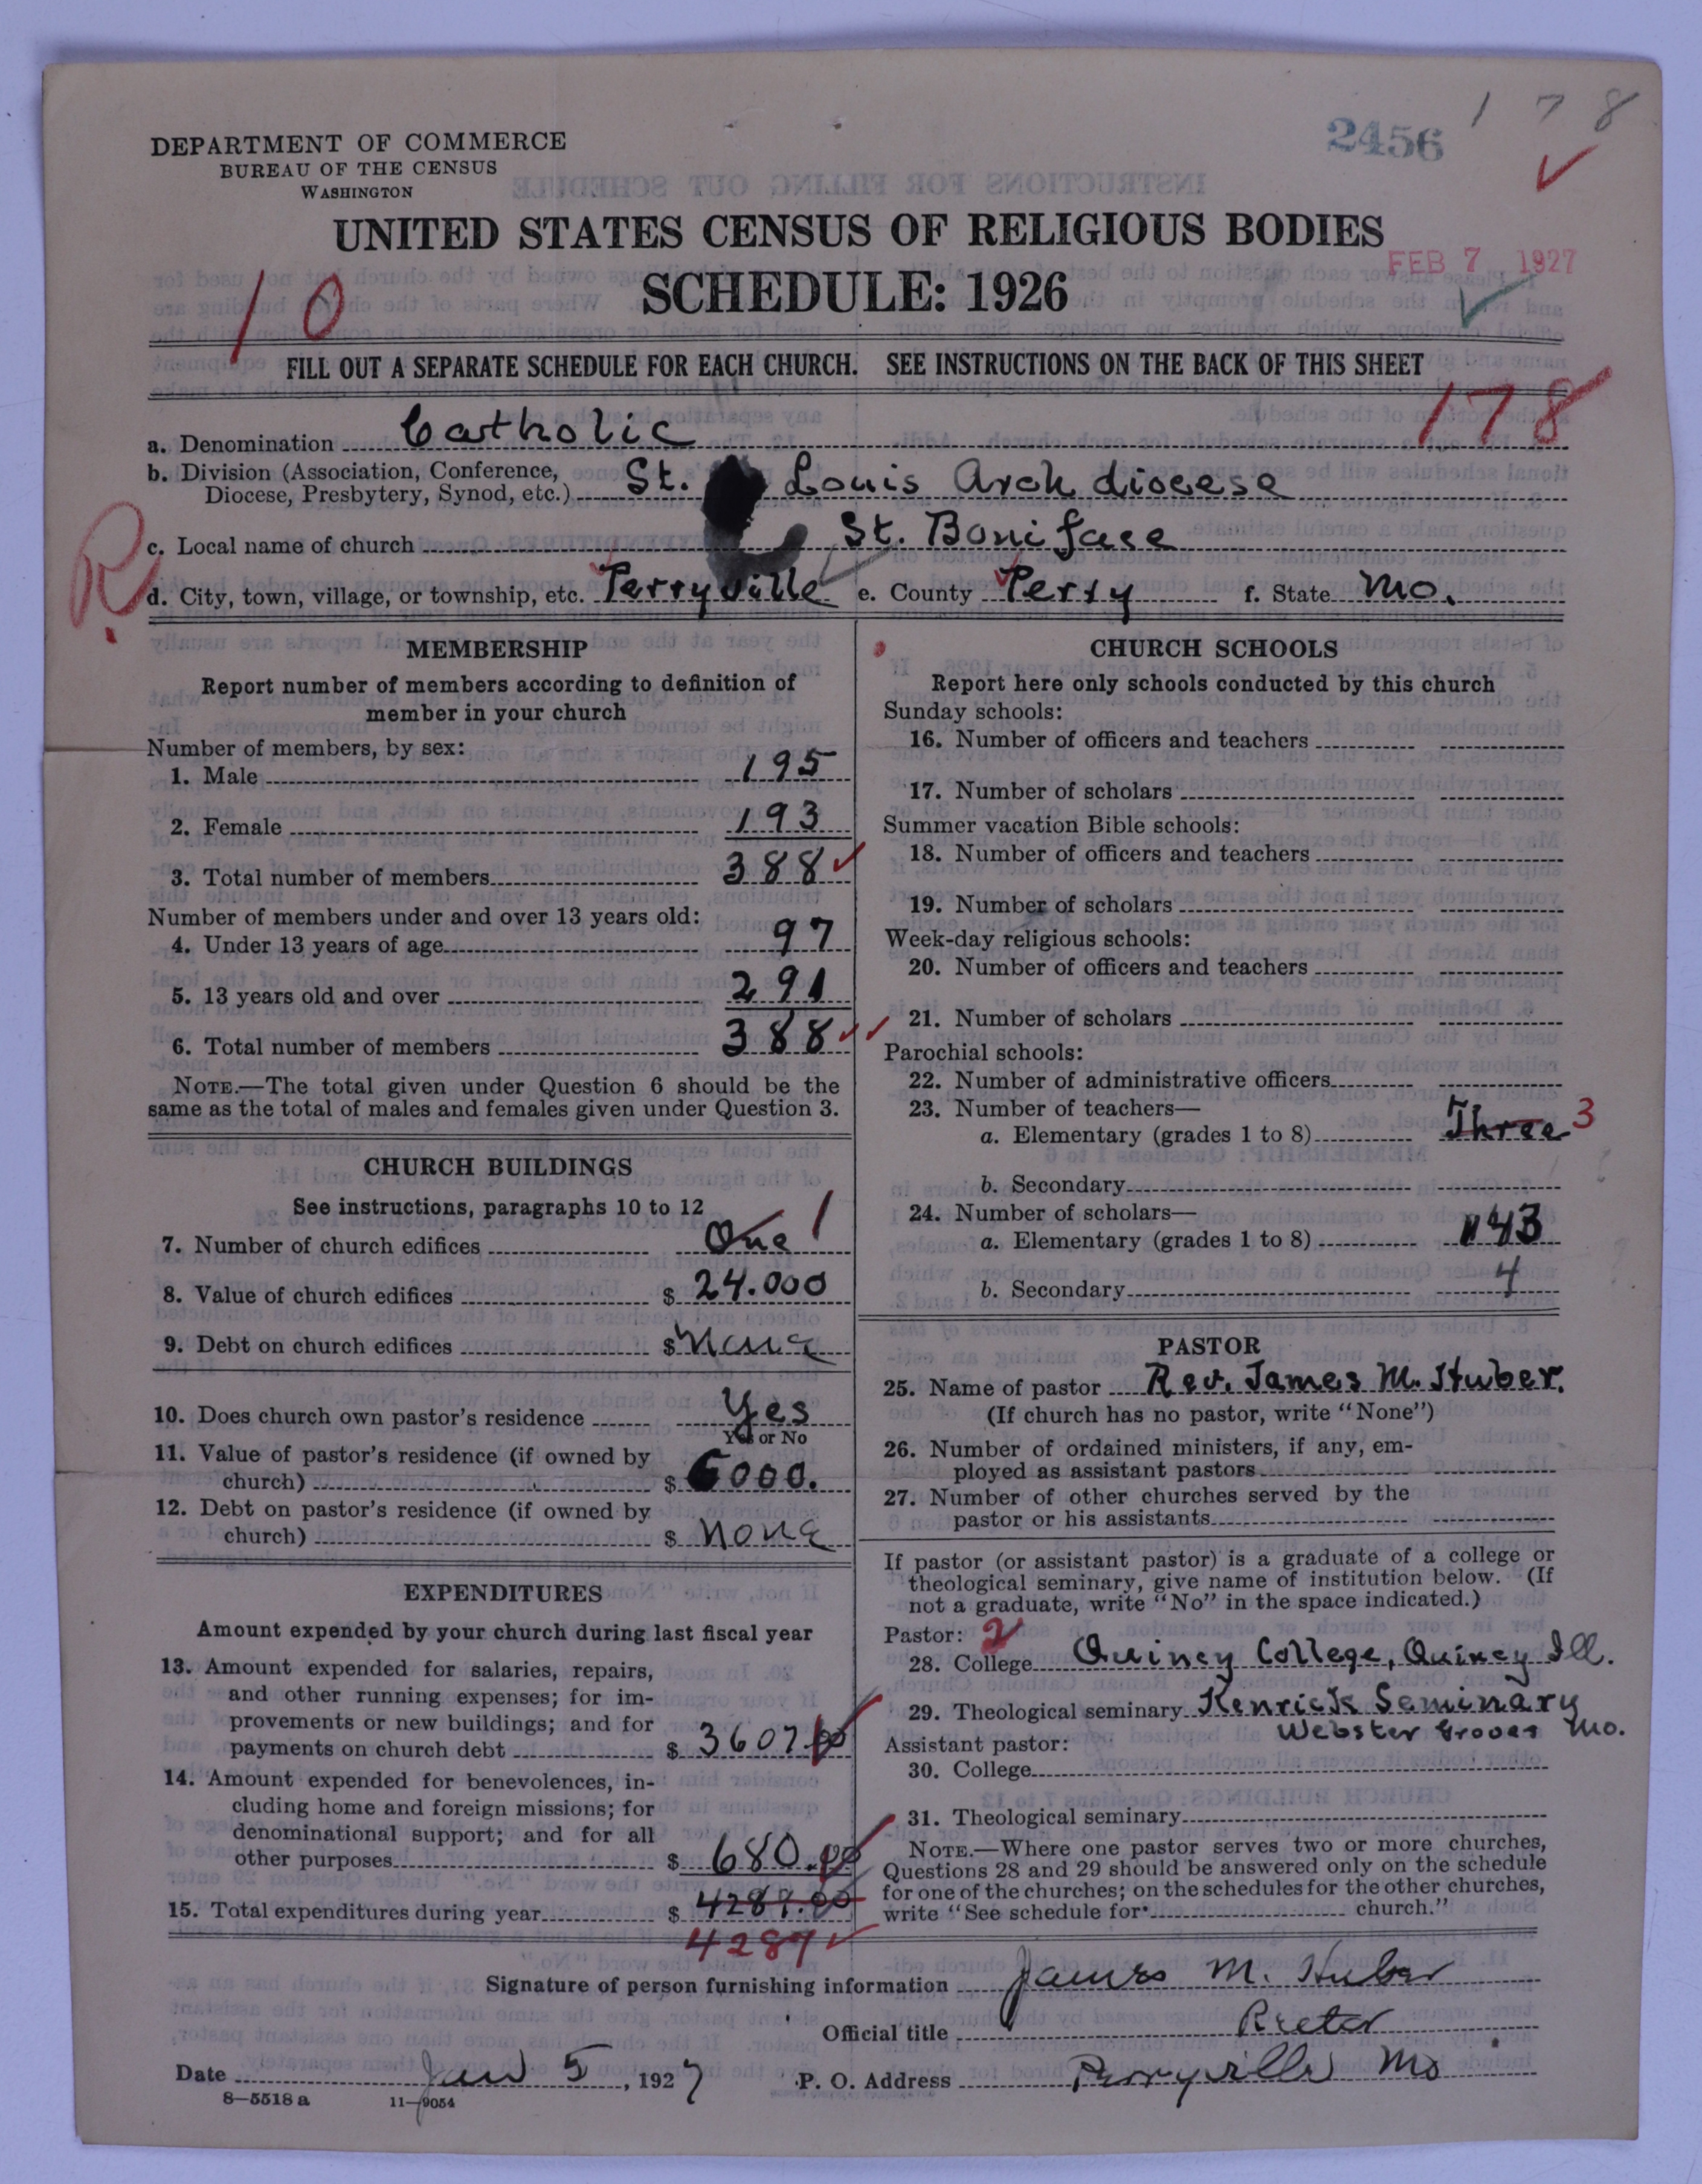 2456
1 7 8
DEPARTMENT OF COMMERCE
BUREAU OF THE CENSUS
WASHINGTON
UNITED STATES CENSUS OF RELIGIOUS BODIES
SCHEDULE: 1926
FEB 7 1927
10
FILL OUT A SEPARATE SCHEDULE FOR EACH CHURCH. SEE INSTRUCTIONS ON THE BACK OF THIS SHEET
178
a. Denomination Catholic
b. Division (Association, Conference,
Diocese, Presbytery, Synod, etc.) St. Louis Archdiocese
c. Local name of church St. Boniface
R.
d. City, town, village, or township, etc. Perryville e. County Perry f. State Mo.
MEMBERSHIP
Report number of members according to definition of
member in your church
Number of members, by sex:
1. Male 195
2. Female 193
3. Total number of members 388
Number of members under and over 13 years old:
4. Under 13 years of age 97
5. 13 years old and over 291
6. Total number of members 388
NOTE.—The total given under Question 6 should be the
same as the total of males and females given under Question 3.
CHURCH BUILDINGS
See instructions, paragraphs 10 to 12
7. Number of church edifices One 1
8. Value of church edifices $ 24.000
9. Debt on church edifices $ None
10. Does church own pastor's residence Yes
Yes or No
11. Value of pastor's residence (if owned by
church) $ 6000.
12. Debt on pastor's residence (if owned by
church) $ None
EXPENDITURES
Amount expended by your church during last fiscal year
13. Amount expended for salaries, repairs,
and other running expenses; for im-
provements or new buildings; and for
payments on church debt $ 3607.00
14. Amount expended for benevolences, in-
cluding home and foreign missions; for
denominational support; and for all
other purposes $ 680.00
15. Total expenditures during year $ 4287.00
4287
CHURCH SCHOOLS
Report here only schools conducted by this church
Sunday schools:
16. Number of officers and teachers
17. Number of scholars
Summer vacation Bible schools:
18. Number of officers and teachers
19. Number of scholars
Week-day religious schools:
20. Number of officers and teachers
21. Number of scholars
Parochial schools:
22. Number of administrative officers
23. Number of teachers—
a. Elementary (grades 1 to 8) Three 3
b. Secondary
24. Number of scholars—
a. Elementary (grades 1 to 8) 143
b. Secondary 4
PASTOR
25. Name of pastor Rev. James M. Huber.
(If church has no pastor, write "None")
26. Number of ordained ministers, if any, em-
ployed as assistant pastors
27. Number of other churches served by the
pastor or his assistants
If pastor (or assistant pastor) is a graduate of a college or
theological seminary, give name of institution below. (If
not a graduate, write "No" in the space indicated.)
Pastor: 2
28. College Quincy College, Quincy Ill.
29. Theological seminary Kenrick Seminary
Webster Groves Mo.
Assistant pastor:
30. College
31. Theological seminary
NOTE.—Where one pastor serves two or more churches,
Questions 28 and 29 should be answered only on the schedule
for one of the churches; on the schedules for the other churches,
write "See schedule for church."
Signature of person furnishing information James M. Huber
Official title Rector
Date Jan 5, 1927 P. O. Address Perryville Mo
8—5518 a 11—9054